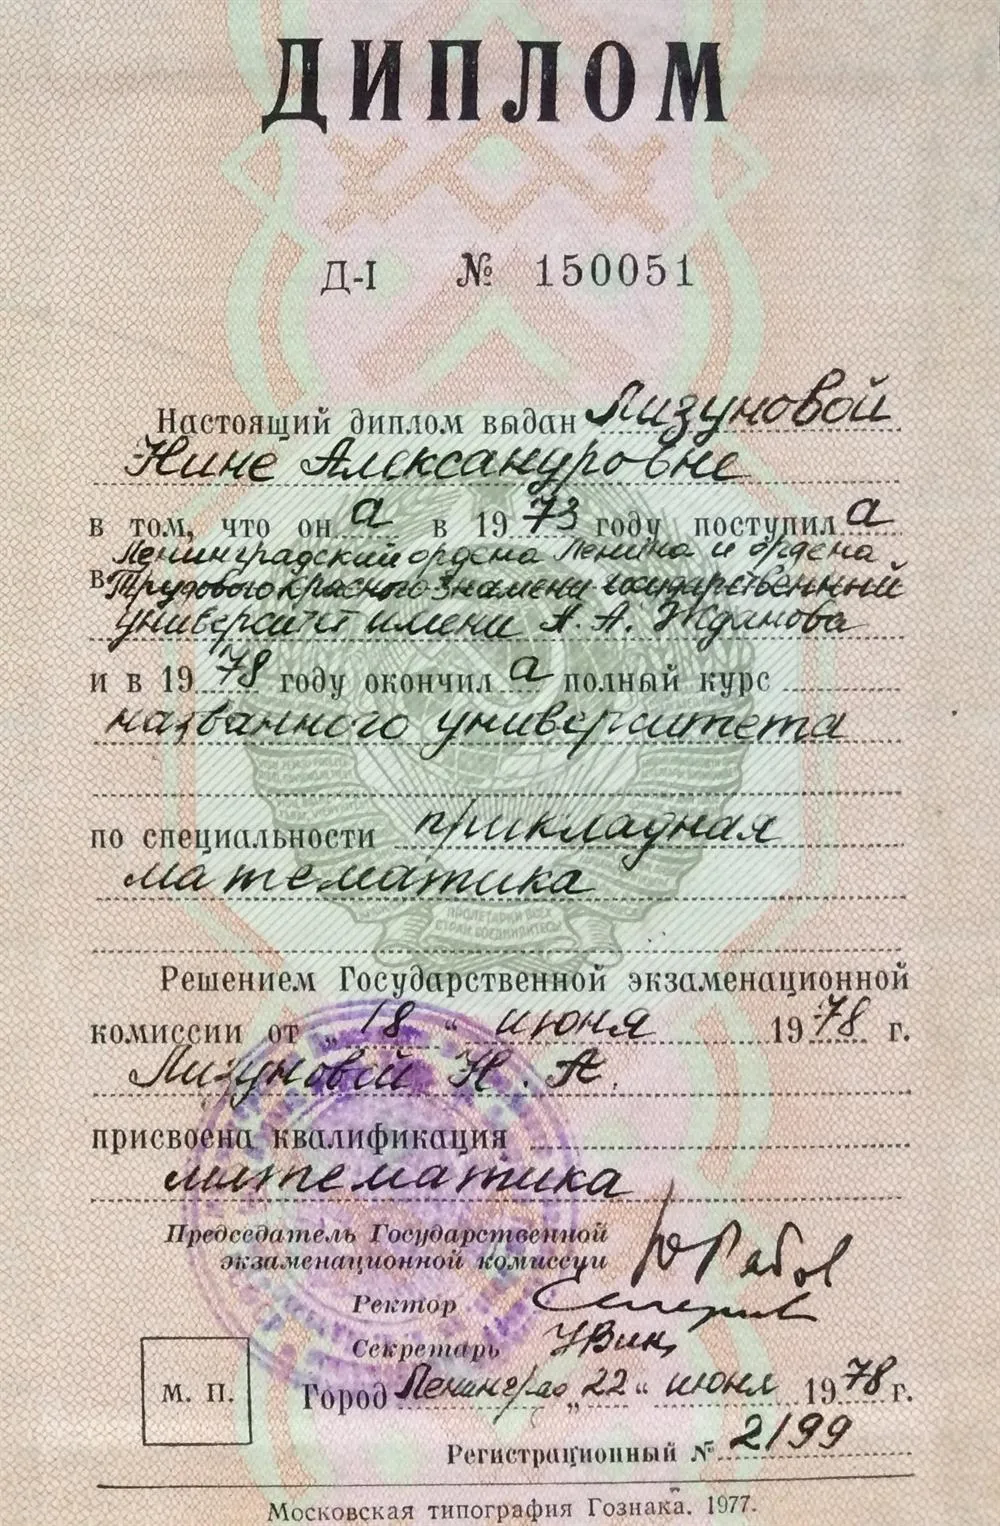 ДИПЛОМ
Д-I № 150051
Настоящий диплом выдан Лизуновой
Нине Александровне
в том, что он а в 1973 году поступил а
Ленинградский ордена Ленина и ордена
в Трудового Красного Знамени государственный
университет имени А. А. Жданова
и в 1978 году окончил а полный курс
названного университета
по специальности прикладная
математика
ПРОЛЕТАРИИ ВСЕХ
СТРАН СОЕДИНЯЙТЕСЬ
Решением Государственной экзаменационной
комиссии от „18" июня 1978 г.
Лизуновой Н. А.
присвоена квалификация
математика
Председатель Государственной
экзаменационной комиссии
Ректор
Секретарь
М. П.
Город Ленинград „22" июня 1978 г.
Регистрационный № 2199
Московская типография Гознака. 1977.